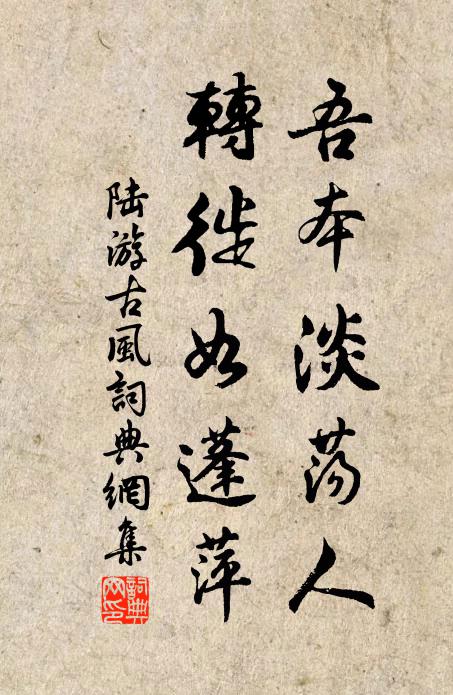 吾本淡蕩人
轉徙如蓬萍
陸游古風詞典網集
詞典网印